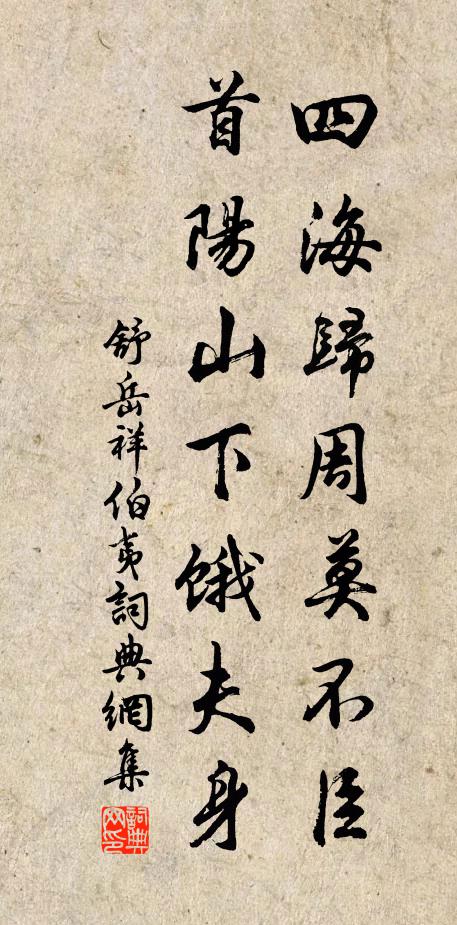 四海歸周莫不臣
首陽山下餓夫身
舒岳祥伯夷詞典網集
詞典網印